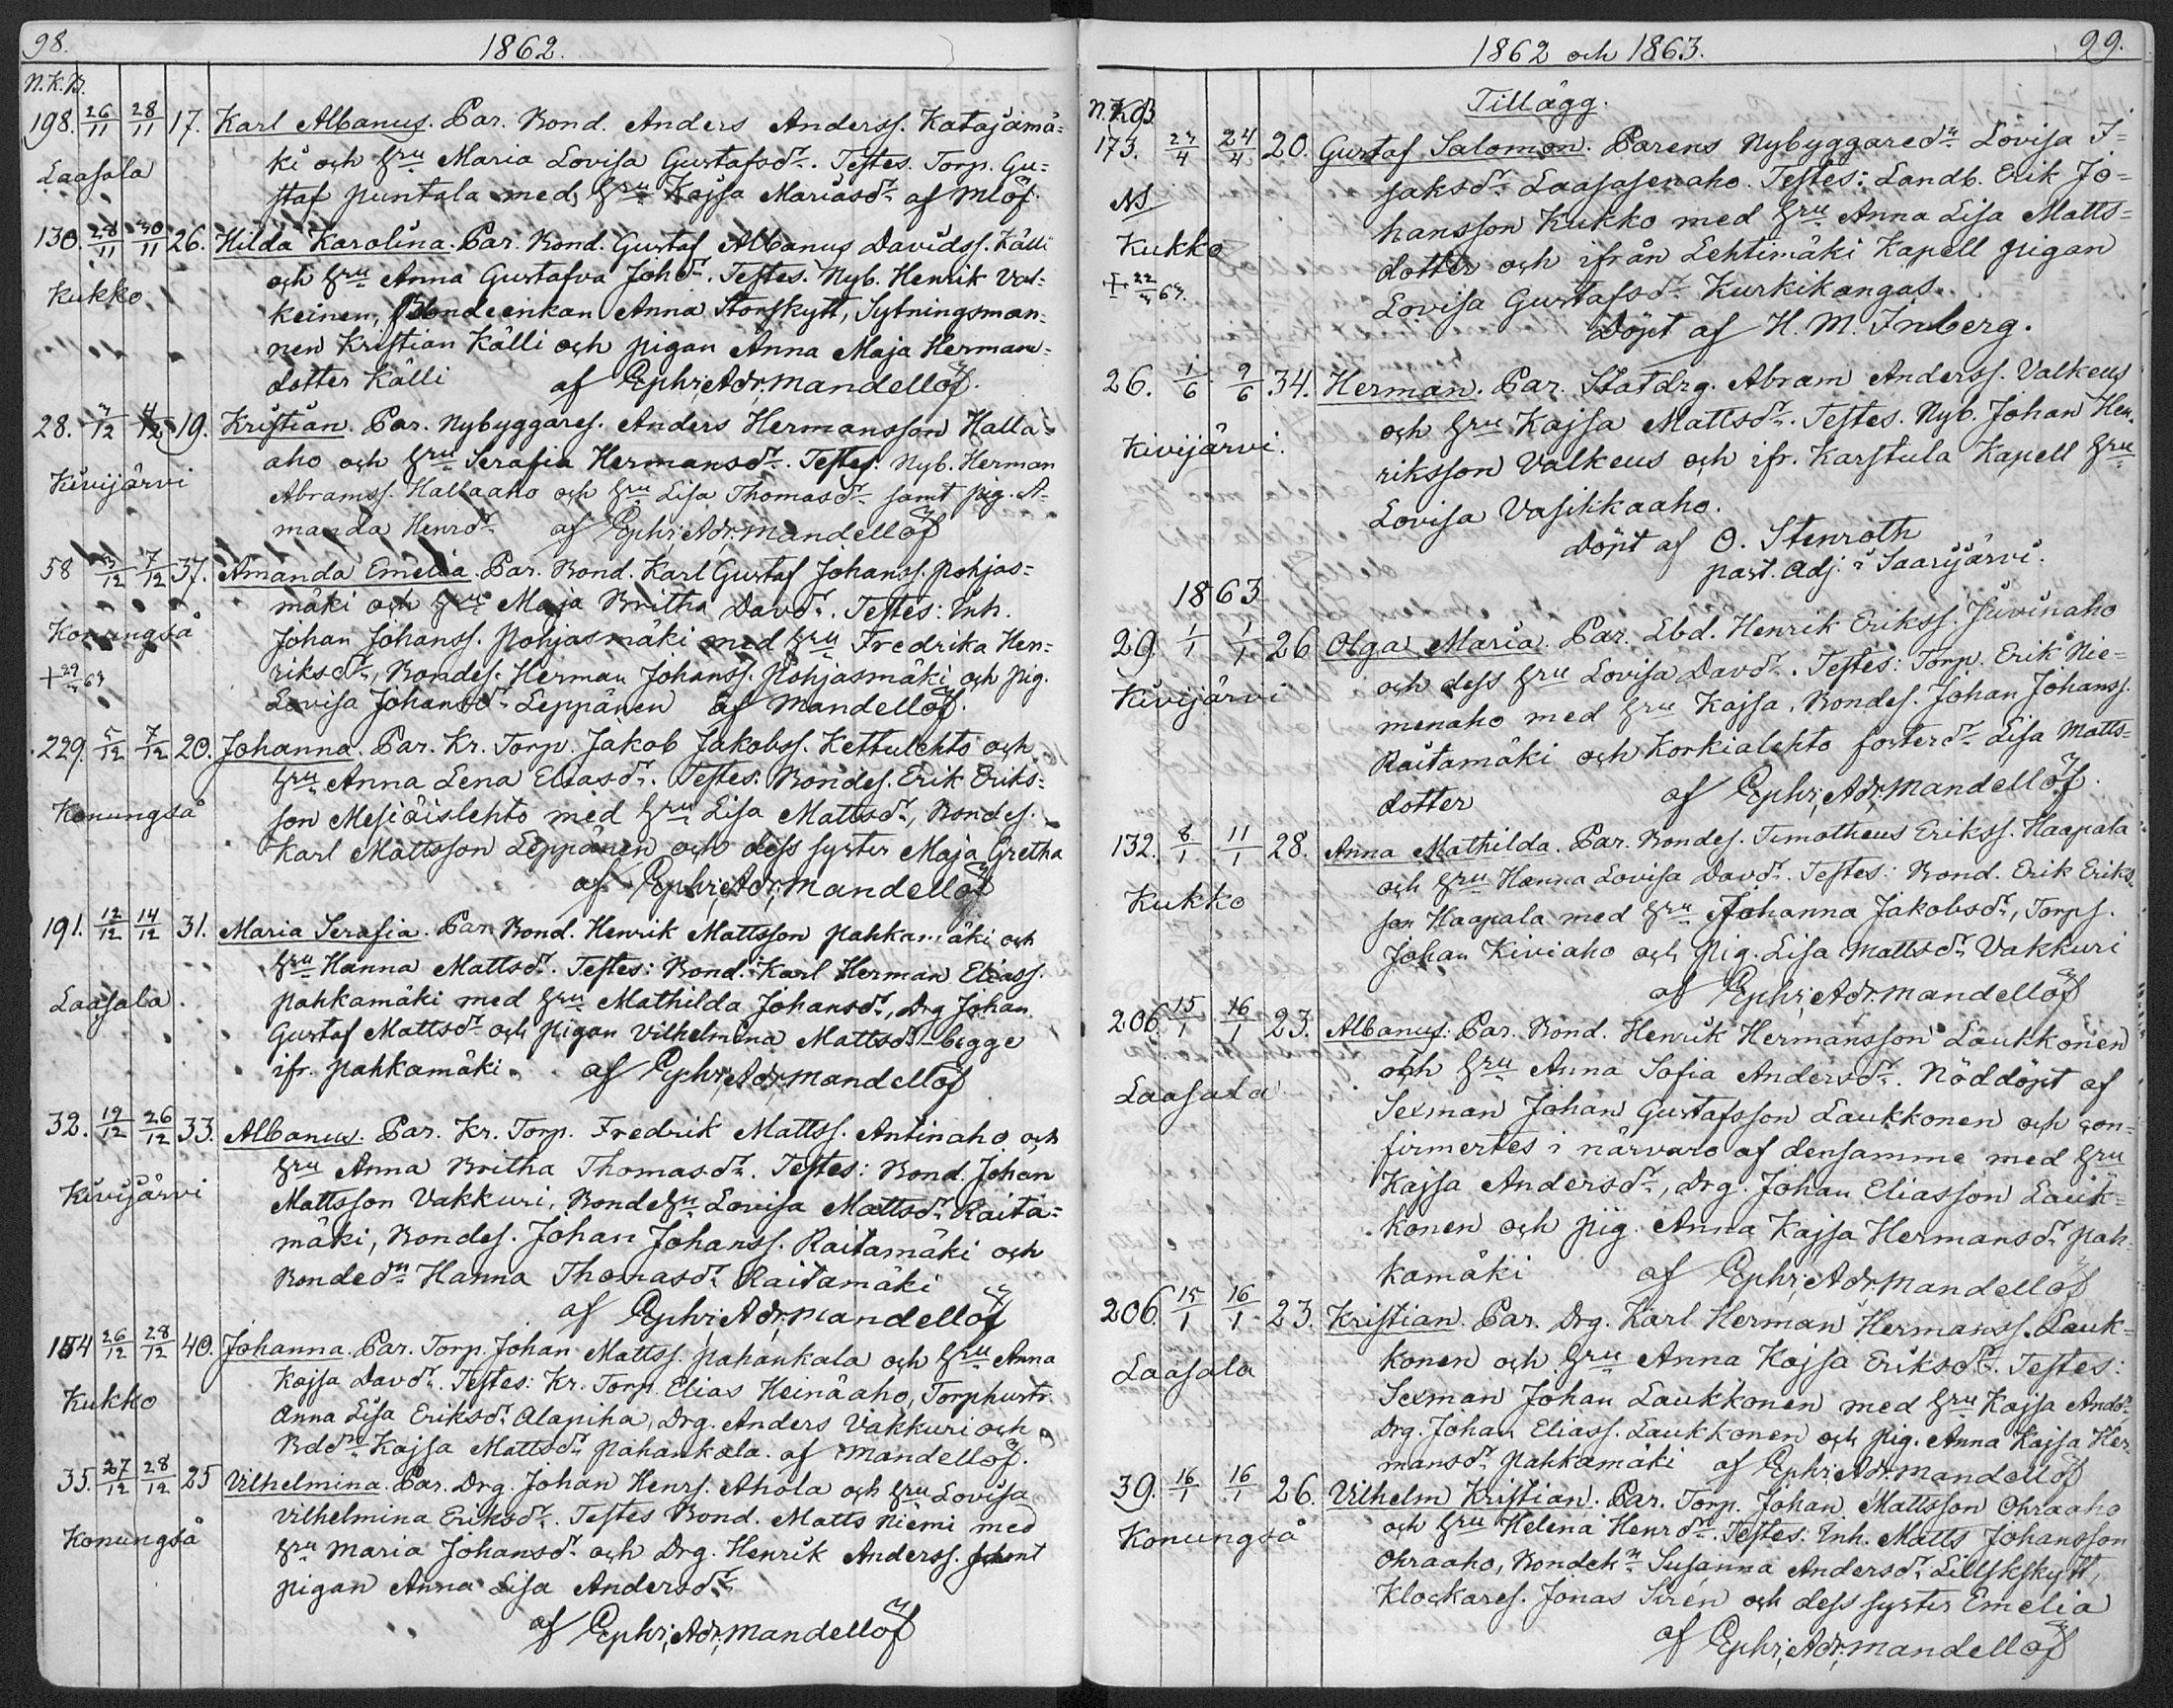 98.
1862.
N.K.B.
198. 26/11 28/11 17. Karl Albanus. Par. Bond. Anders Anderss. Katajamä=
ki och hru Maria Lovisa Gustafsdr. Testes. Torp. Gu=
Laasala
staf Puntala med hru Kajsa Mariasdr af Mlöf.
130. 28/11 30/11 26. Hilda Karolina. Par. Bond. Gustaf Albanus Davidss. Källi
och hru Anna Gustafva Johdr. Testes. Nyb. Henrik Val=
Kukko
keinen, Bondeenkan Anna Storskytt, Sytningsman=
nen Kristian Källi och pigan Anna Maja Herman=
dotter Källi af Ephr; Adr; Mandellöf.
28. 3/12 4/12 19. Kristian. Par. Nybyggares. Anders Hermansson Halla=
aho och hru Serafia Hermansdr. Testes: Nyb. Herman
Kivijärvi
Abramss. Hallaaho och hru Lisa Thomasdr samt pig. A=
manda Henrdr af Ephr; Adr; Mandellöf
58 3/12 7/12 37. Amanda Emelia. Par. Bond. Karl Gustaf Johanss. Pohjas=
mäki och hru Maja Britha Davdr. Testes: Inh.
Konungså
Johan Johanss. Pohjasmäki med hru Fredrika Hen=
riksdr, Bondes. Herman Johanss. Pohjasmäki och pig.
+ 29/3 63
Lovisa Johansdr Leppänen af Mandellöf.
229. 5/12 7/12 20. Johanna. Par. Kr. Torp. Jakob Jakobss. Kettulehto och
hru Anna Lena Eliasdr. Testes: Bondes. Erik Eriks=
Konungså
son Mesiäislehto med hru Lisa Mattsdr, Bondes.
Karl Mattsson Leppänen och dess syster Maja Gretha
af Ephr; Adr; Mandellöf
191. 12/12 14/12 31. Maria Serafia. Par. Bond. Henrik Mattsson Pahkamäki och
hru Hanna Mattsdr. Testes: Bond. Karl Herman Eliass.
Laasala.
Pahkamäki med hru Mathilda Johansdr, Drg Johan
Gustaf Mattsdr och pigan Vilhelmina Mattsdr begge
ifr. Pahkamäki. af Ephr; Adr; Mandellöf
32. 19/12 26/12 33. Albanus. Par. Kr. Torp. Fredrik Mattss. Antinaho och
hru Anna Britha Thomasdr. Testes: Bond. Johan
Kivijärvi
Mattsson Vakkuri, Bondehu Lovisa Mattsdr Raita=
mäki, Bondes. Johan Johanss. Raitamäki och
Bondedr Hanna Thomasdr Raitamäki
af Ephr; Adr; Mandellöf
154 26/12 28/12 40. Johanna. Par. Torp. Johan Mattss. Pahankala och hru Anna
Kajsa Davdr. Testes: Kr. Torp. Elias Heinäaho, Torphustr.
Kukko
Anna Lisa Eriksdr Alapiha, Drg. Anders Vakkuri och
Bddr Kajsa Mattsdr Pahankala. af Mandellöf.
35. 27/12 28/12 25 Vilhelmina. Par. Drg. Johan Henrs. Ahola och hru Lovisa
Vilhelmina Eriksdr. Testes Bond. Matts Niemi med
Konungså
hru Maria Johansdr och Drg. Henrik Anderss. samt
pigan Anna Lisa Andersdr
af Ephr; Adr; Mandellöf
1862 och 1863.
99.
Tillägg.
N.K.B.
173. 23/4 24/4 20. Gustaf Salomon. Parens Nybyggaredr Lovisa I=
saksdr Laasasenaho. Testes: Landb. Erik Jo=
NB
hansson Kukko med hru Anna Lisa Matts=
Kukko
dotter och ifrån Lehtimäki Kapell pigan
+ 22/3 63.
Lovisa Gustafsdr Kurkikangas.
Döpt af H. M. Inberg.
26. 1/6 9/6 34. Herman. Par. Statdrg. Abram Anderss. Valkeus
och hru Kajsa Mattsdr. Testes. Nyb. Johan Hen=
Kivijärvi.
riksson Valkeus och ifr. Karstula Kapell hru
Lovisa Vasikkaaho.
Döpt af O. Stenroth
past. Adj. i Saarijärvi.
1863
29. 1/1 1/1 26 Olga Maria. Par. Lbd. Henrik Erikss. Juvinaho
och dess hru Lovisa Davdr. Testes: Torp. Erik Nie=
Kivijärvi
menaho med hru Kajsa, Bondes. Johan Johanss.
Raitamäki och Korkialehto fosterdr Lisa Matts=
dotter af Ephr; Adr; Mandellöf.
132. 8/1 11/1 28. Anna Mathilda. Par. Bondes. Timotheus Erikss. Haapala
och hru Hanna Lovisa Davdr. Testes: Bond. Erik Eriks=
Kukko
son Haapala med hru Johanna Jakobsdr, Torps.
Johan Kiviaho och pig. Lisa Mattsdr Vakkuri
af Ephr; Adr; Mandellöf
206. 15/1 16/1 23. Albanus. Par. Bond. Henrik Hermansson Laukkonen
och hru Anna Sofia Andersdr. Nöddöpt af
Laasala
Sexman Johan Gustafsson Laukkonen och con=
firmertes i närvaro af densamme med hru
Kajsa Andersdr, Drg. Johan Eliasson Lauk=
konen och pig. Anna Kajsa Hermansdr Pah=
kamäki af Ephr; Adr; Mandellöf
206. 15/1 16/1 23. Kristian. Par. Drg. Karl Herman Hermanss. Lauk=
konen och hru Anna Kajsa Eriksdr. Testes:
Laasala
Sexman Johan Laukkonen med hru Kajsa Anddr
Drg. Johan Eliass. Laukkonen och pig. Anna Kajsa Her=
mansdr Pahkamäki af Ephr; Adr; Mandellöf
39. 16/1 16/1 26. Vilhelm Kristian. Par. Torp. Johan Mattsson Ohraaho
och hru Helena Henrdr. Testes. Inh. Matts Johansson
Konungså
Ohraaho, Bondeh Susanna Andersdr Lillskskytt,
Klockares. Jonas Sirén och dess syster Emelia
af Ephr; Adr; Mandellöf